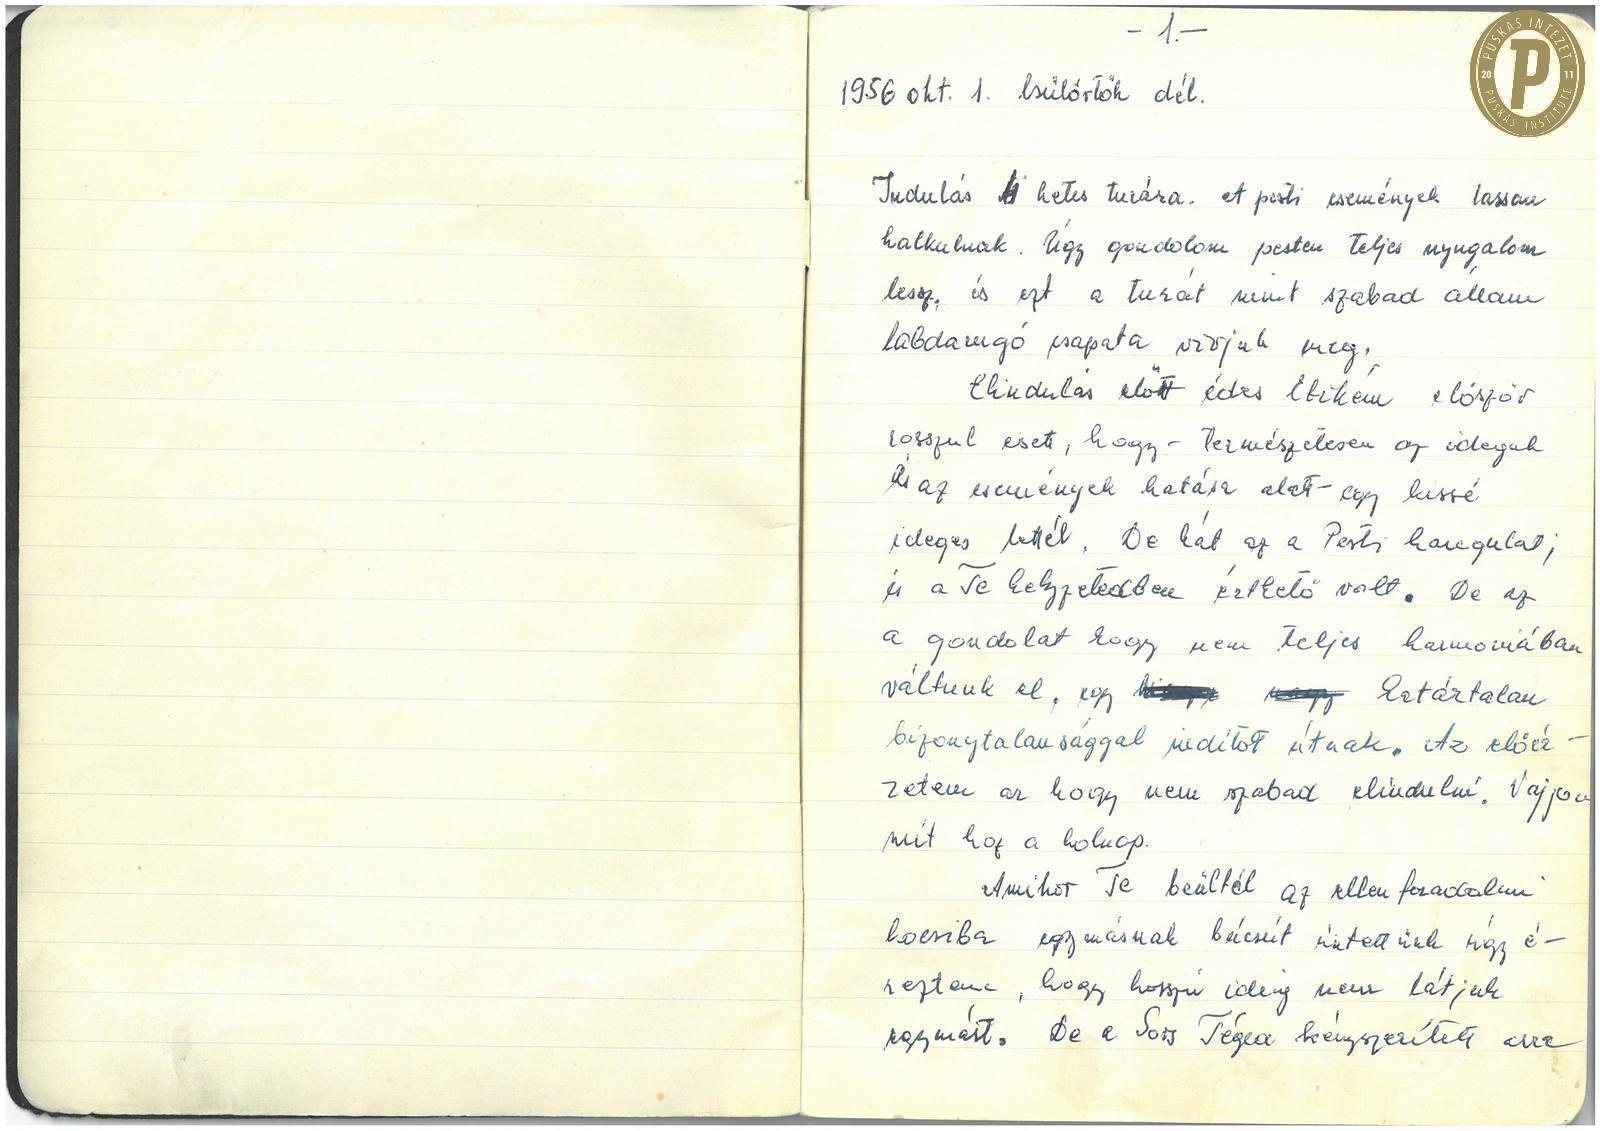 - 1. -
1956 okt. 1. csütörtök dél.
PUSKÁS INTÉZET
20 P 11
PUSKÁS INSTITUTE
Indulás 4 hetes turára. A pesti események lassan
halkulnak. Úgy gondolom pesten teljes nyugalom
lessz, és ezt a turát mint szabad állam
labdarugó csapata vivjuk meg.
Elindulás előtt édes Ebikém először
rosszul esett, hogy - természetesen az idegek
és az események hatása alatt - egy kissé
ideges lettél. De hát az a Pesti hangulat;
és a Te helyzetedben érthető volt. De az
a gondolat hogy nem teljes harmoniában
váltunk el, egy határtalan
bizonytalansággal inditot útnak. Az előér-
zetem az hogy nem szabad elindulni. Vajjon
mit hoz a holnap.
Amikor Te beültél az ellenforadalmi
kocsiba egymásnak búcsút intettünk úgy é-
reztem, hogy hosszú ideig nem látjuk
egymást. De a Sors Téged kényszerített arra